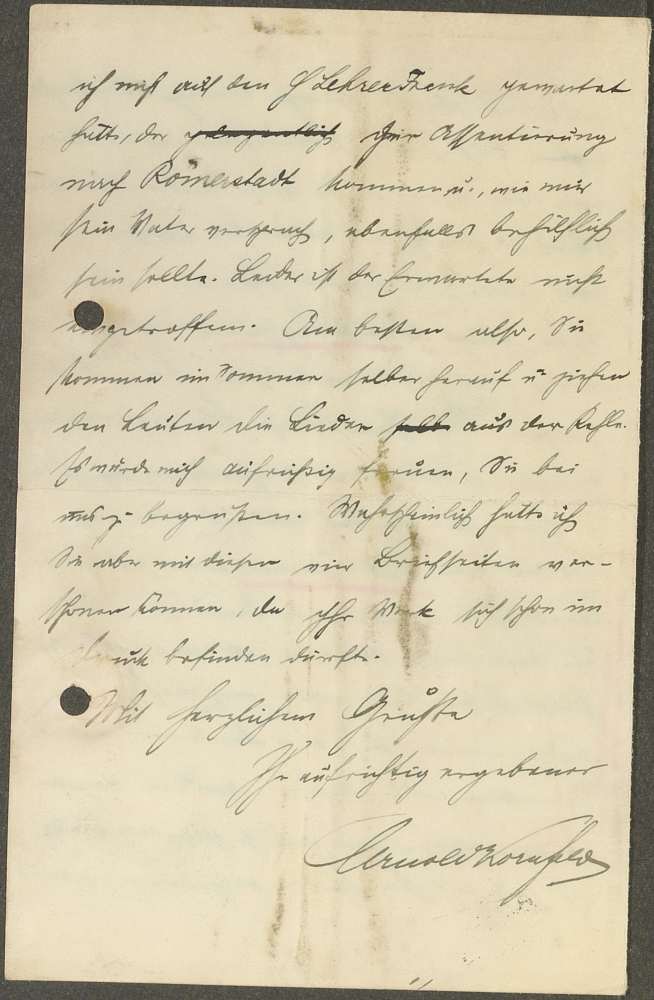 ich mich auf den H Lehrer Frank gewartet
hatte, der gelegentlich der Assentierung
nach Römerstadt kommen u., wie mir
sein Vater versprach, ebenfalls behilflich
sein sollte. Leider ist der Erwartete nicht
eingetroffen. Am besten also, Sie
kommen im Sommer selber herauf u ziehen
den Leuten die Lieder selbst aus der Kehle.
Es würde mich aufrichtig freuen, Sie bei
uns z. begrüßen. Wahrscheinlich hätte ich
Sie aber mit diesen vier Briefseiten ver-
schonen können, da Ihr Werk sich schon im
Druck befinden dürfte.
Mit herzlichem Gruße
Ihr aufrichtig ergebener
Arnold Kornfeld